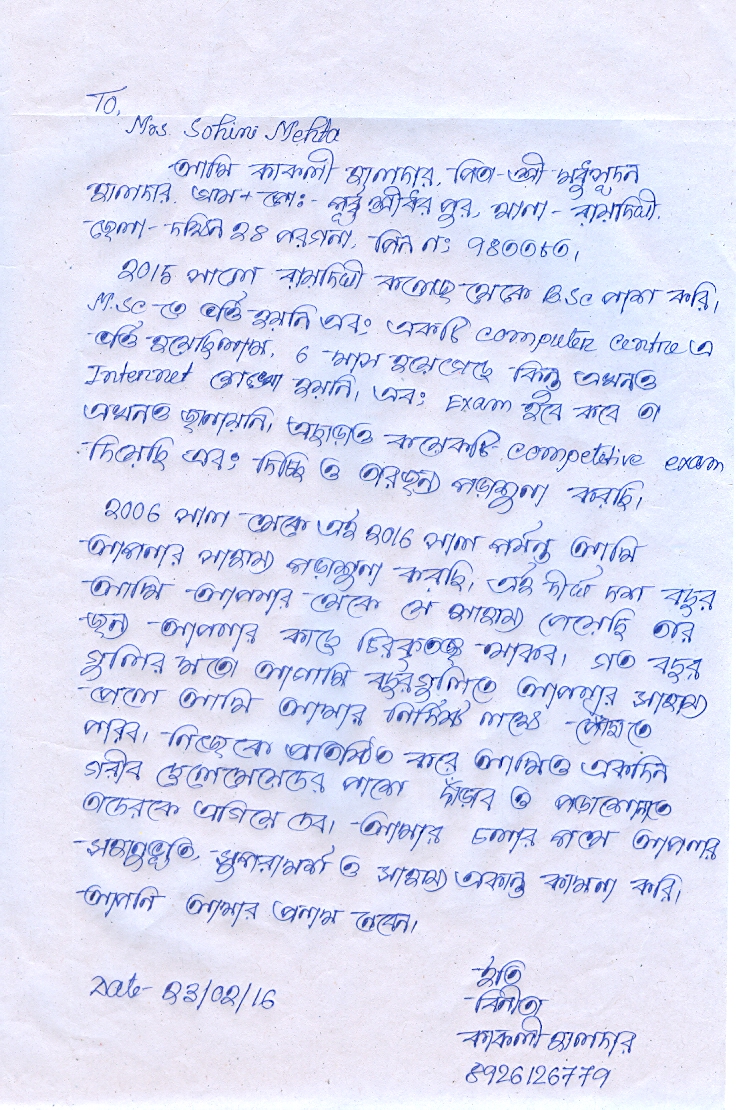 To,
Mrs. Sohini Mehta
আমি কাকলী হালদার, পিতা-শ্রী মধুসূদন
হালদার. গ্রাম + পোঃ- পূর্ব শ্রীধর পুর, থানা - রায়দিঘী.
জেলা - দক্ষিন ২৪ পরগনা, পিন নং ৭৪৩৩৮৩,
2015 সালে রায়দিঘী কলেজ থেকে B.Sc পাশ করি।
M.Sc তে ভর্তি হয়নি এবং একটি computer centre এ
ভর্তি হয়েছিলাম, 6 মাস হয়েগেছে কিন্তু এখনও
Internet শেখা হয়নি। এবং Exam হবে কবে তা
এখনও জানায়নি। এছাড়াও কয়েকটি competetive exam
দিয়েছি এবং দিচ্ছি ও তারজন্য পড়াশুনা করছি।
2006 সাল থেকে এই 2016 সাল পর্যন্ত আমি
আপনার সাহায্যে পড়াশুনা করছি, এই দীর্ঘ দশ বছর
আমি আপনার থেকে যে সাহায্য পেয়েছি তার
জন্য আপনার কাছে চিরকৃতজ্ঞ থাকব। গত বছর
গুলির মতো আগামি বছরগুলিতে আপনার সাহায্য
পেলে আমি আমার নির্দিষ্ট লক্ষ্যে পৌঁছাতে
পারব। নিজেকে প্রতিষ্ঠিত করে আমিও একদিন
গরীব ছেলেমেয়েদের পাশে দাঁড়াব ও পড়াশোনাতে
তাদেরকে এগিয়ে দেব। আমার চলার পথে আপনার
সহানুভূতি, সুপরামর্শ ও সাহায্য একান্ত কামনা করি।
আপনি আমার প্রনাম নেবেন।
Date- 23/02/16
ইতি
বিনীতা
কাকলী হালদার
8926126779